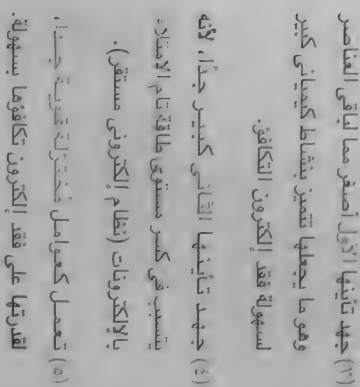 (٣) جهد تأينها الأول أصغر مما لباقى العناصر
وهو ما يجعلها تتميز بنشاط كيميائى كبير
لسهولة فقد إلكترون التكافؤ.
(٤) جهد تأينها الثانى كبير جدًا، لأنه
يتسبب فى كسر مستوى طاقة تام الامتلاء
بالإلكترونات (نظام إلكترونى مستقر).
(٥) تعمل كعوامل مختزلة قوية جدا،
لقدرتها على فقد إلكترون تكافؤها بسهولة.